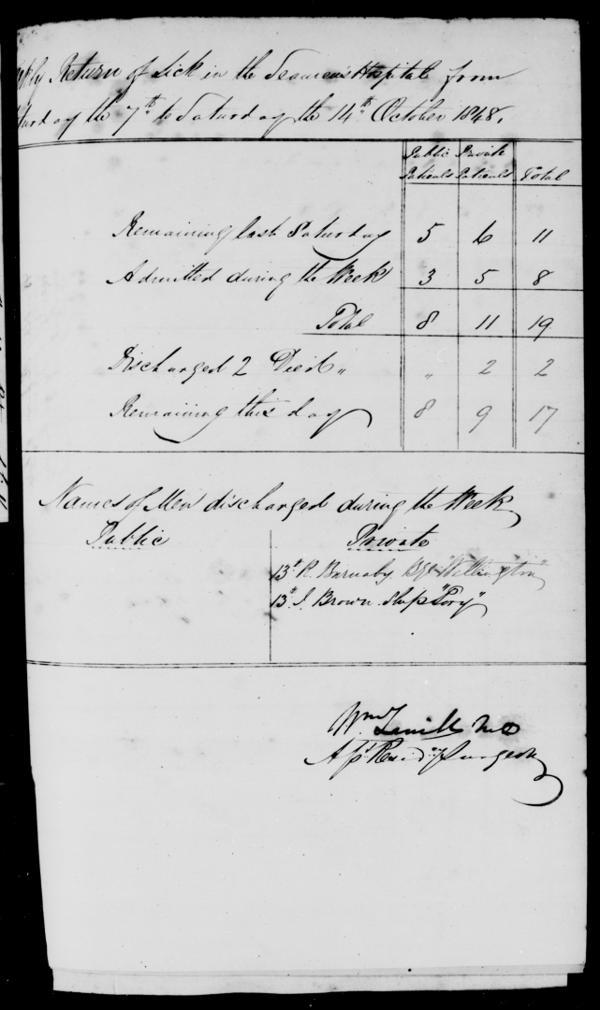 Return of Sick in the Seamen's Hospital from
the 7th to Saturday the 14th October 1848.
Public Patients Private Patients Total
Remaining last Saturday 5 6 11
Admitted during the Week 3 5 8
Total 8 11 19
Discharged 2 Died " " 2 2
Remaining this day 8 9 17
Names of Men discharged during the Week
Public Private
13th R. Barnaby "Wellington"
13th J. Brown Ship
Wm MD
Surgeon